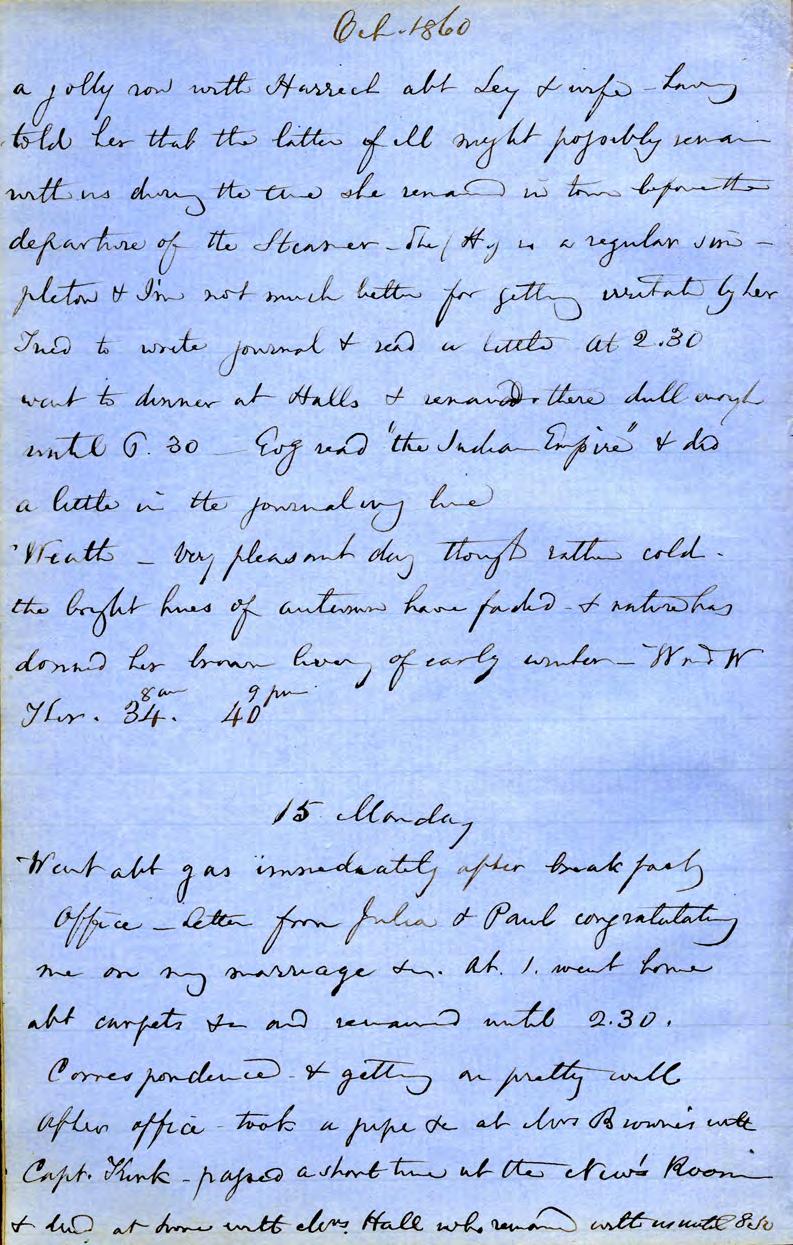 Oct. 1860
a jolly row with Harriet abt Ley & wife – having
told her that the latter if ill might possibly remain
with us during the time she remained in town before the
departure of the Steamer – She (Hy is a regular sim–
pleton & I'm not much better for getting irritated by her
Tried to write journal & read a little At 2.30
went to dinner at Halls & remained there dull enough
until 6.30 – Evg read "the Indian Empire" & did
a little in the journalizing line
Weath – Very pleasant day though rather cold –
the bright hues of autumn have faded & nature has
donned her brown livery of early winter – Wind W
8 am 9 pm
Ther. 34. 40
15 Monday
Went abt gas immediately after breakfast
Office – letter from Julia & Paul congratulating
me on my marriage &c. At. 1. went home
abt carpets &c and remained until 2.30.
Correspondence & getting on pretty well
After office – took a pipe &c at Mrs Browns with
Capt. Kirk – passed a short time at the News Room
& dined at home with Mrs. Hall who remained with us until 8.30